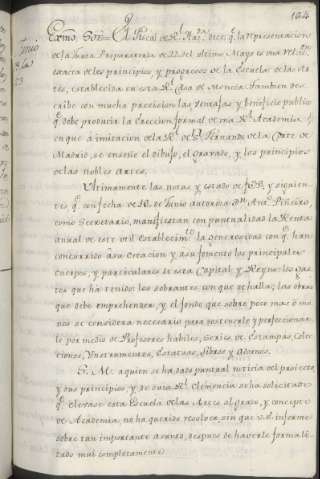 104
Exmo. Sor. = El Fiscal de Rl. Hazda. dice: q. la representacion
de la Junta Preparatoria de 22 del ultimo Mayo es una relacion
exacta de los principios, y progresos de la Escuela de las Ar-
tes, establecida en esta Rl. Casa de Moneda. Tambien des-
cribe con mucha precision las ventajas y beneficio publico
q. debe producir la ereccion formal de una Rl. Academia
en que à imitacion de la Rl. de Sn. Fernando de la Corte de
Madrid, se enseñe el dibujo, el gravado, y los principios
de las nobles Artes.
Ultimamente las notas y estado de y siguien-
tes q. con fecha de de Junio autoriza Dn. Anto. Piñeiro,
como Secretario, manifiestan con puntualidad la Renta
anual de este util Establecimto. la generosidad con q. han
concurrido à su Creacion y à su fomento los principales
cuerpos, y particulares de esta Capital y Reyno: los gas-
tos que ha tenido: los sobrantes con que se halla; las obras
que debe emprehender, y el fondo que sobre poco mas ó me-
nos se considera necesario para sostenerlo y perfeccionar-
lo por medio de Profesores habiles, Series de Estampas, Cole-
cciones, Ynstrumentos, Estatuas, Libros y Adornos.
S. M. a quien se ha dado puntual noticia del proyecto
y sus principios, y de cuia Rl. Clemencia se ha solicitado
q. eleve esta Escuela de las Artes al grado, y concepto
de Academia, no ha querido resolver, sin que V.E. informe
sobre tan importante asunto, despues de haverlo formali-
zado mui completamente